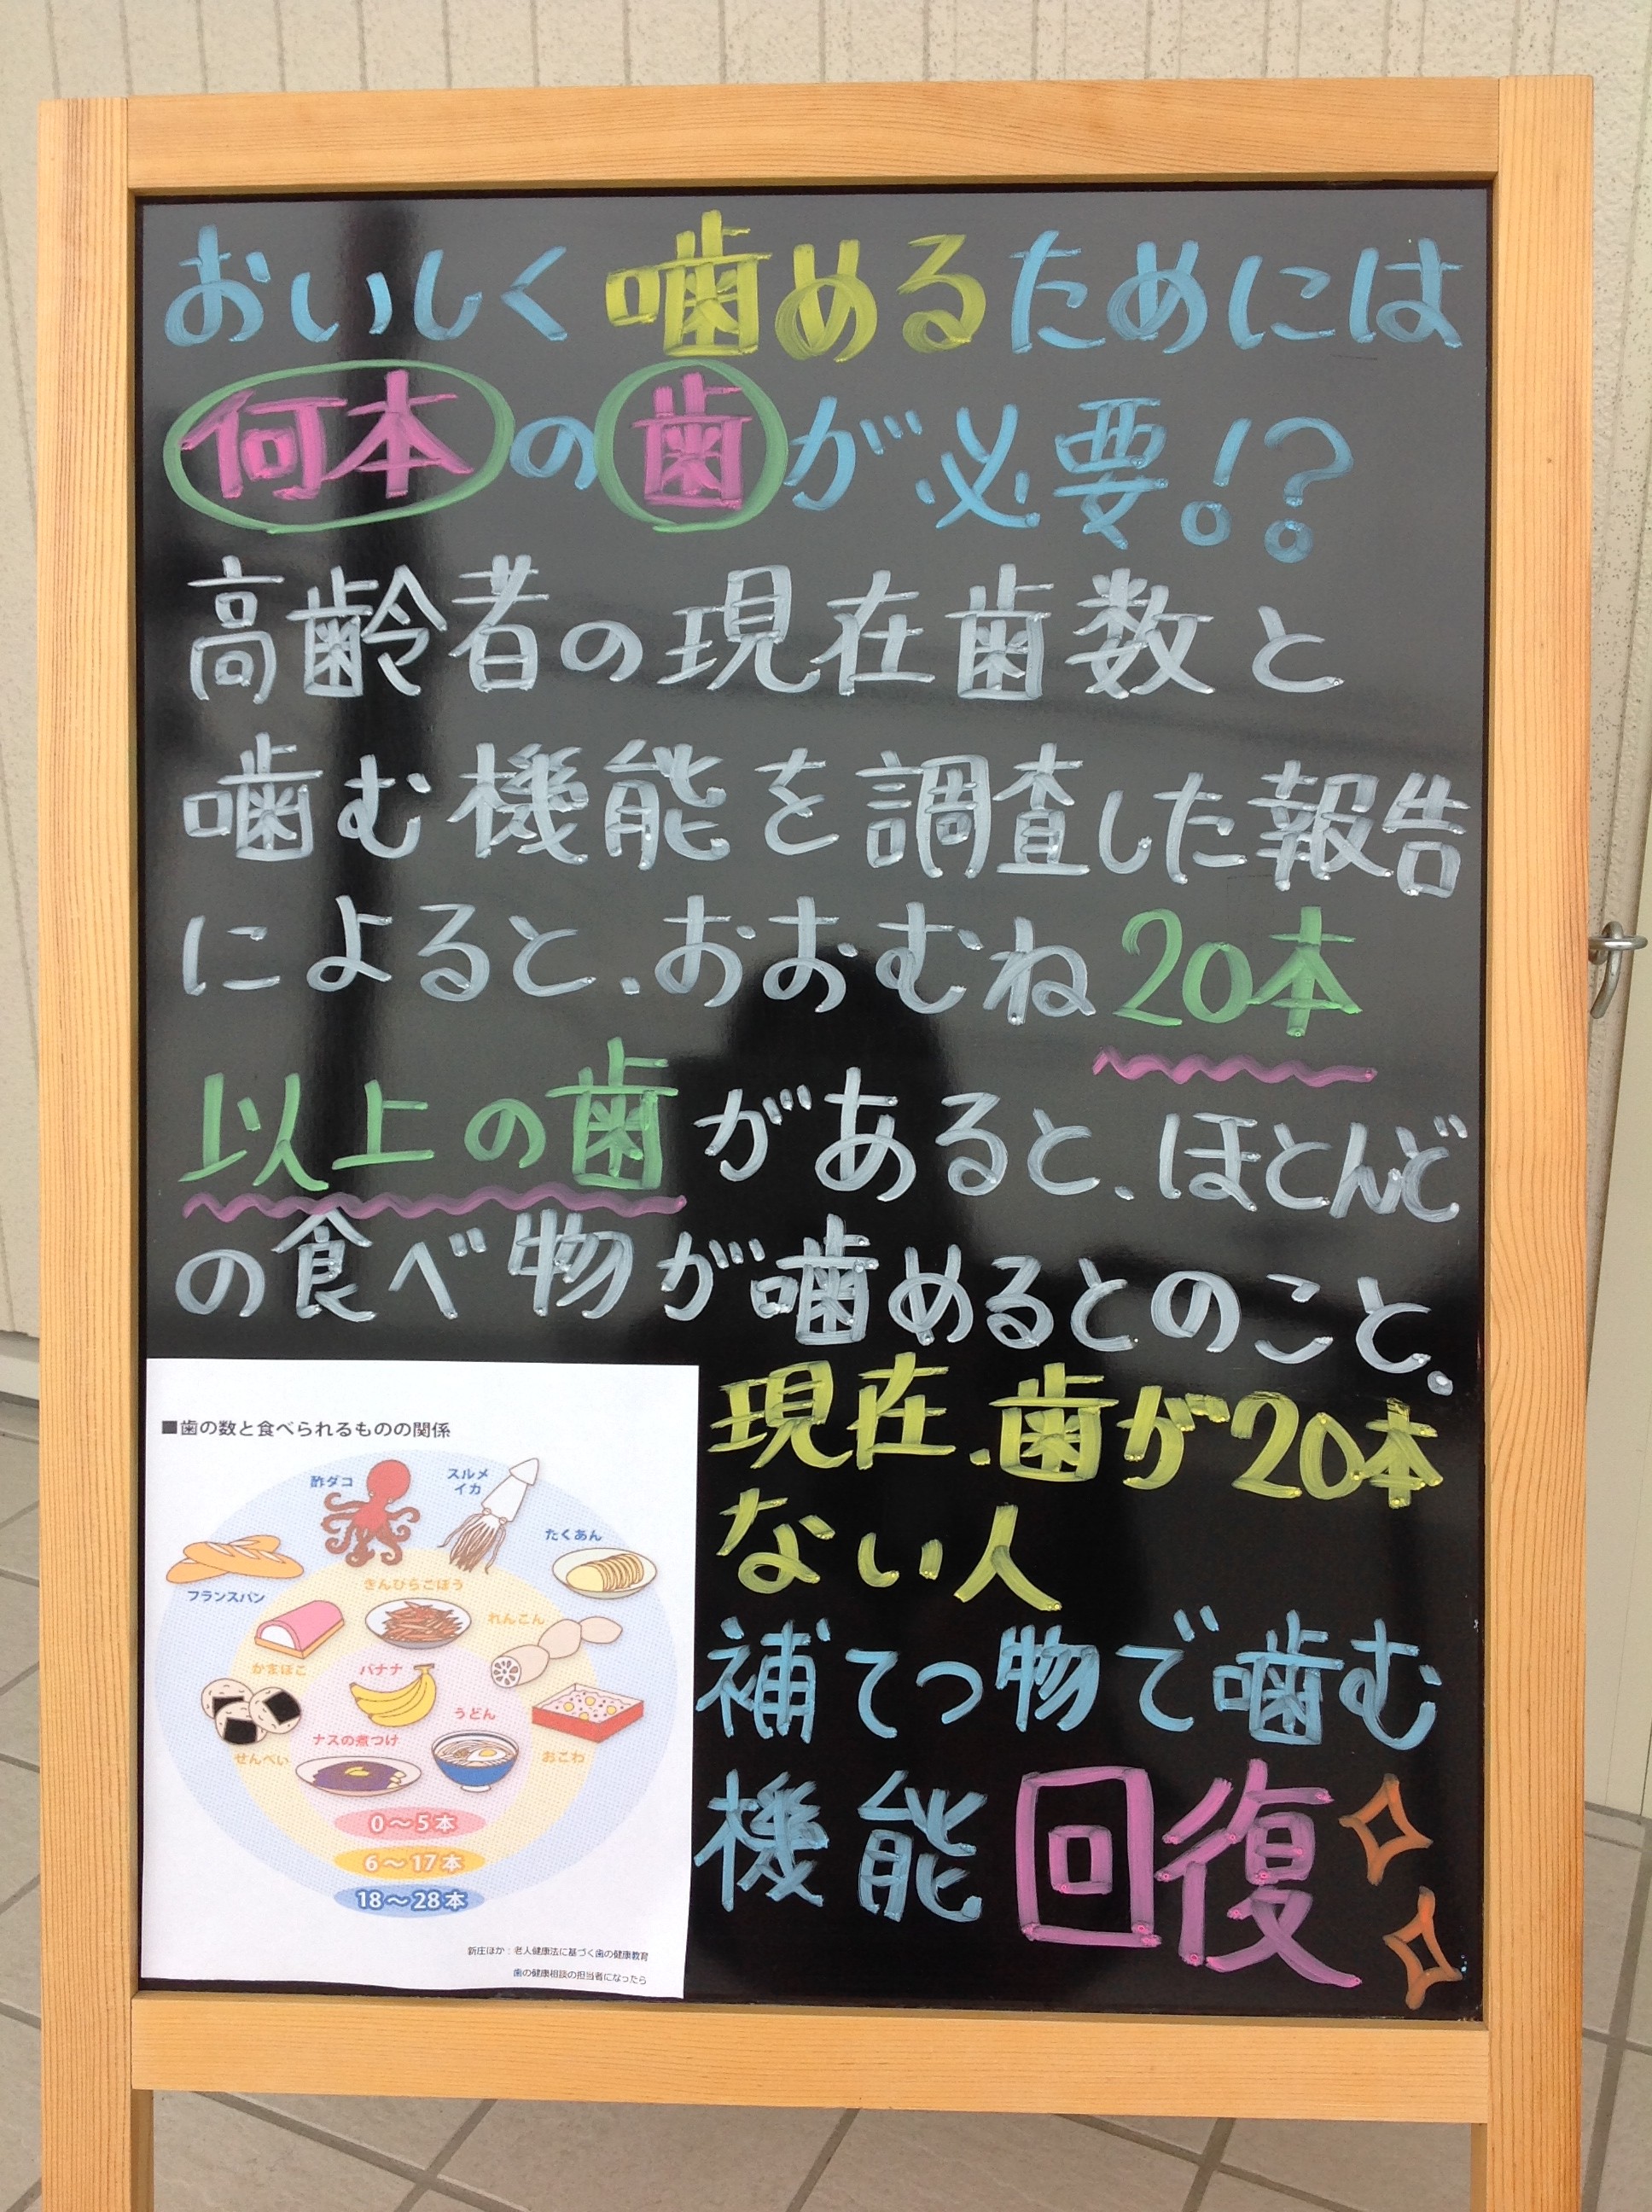 おいしく噛めるためには
何本の歯が必要!?
高齢者の現在歯数と
噛む機能を調査した報告
によると、おおむね20本
以上の歯があると、ほとんど
の食べ物が噛めるとのこと。
現在、歯が20本
ない人
補てつ物で噛む
機能回復
■歯の数と食べられるものの関係
酢ダコ
スルメ
イカ
たくあん
フランスパン
きんぴらごぼう
れんこん
かまぼこ
バナナ
うどん
せんべい
ナスの煮つけ
おこわ
0〜5本
6〜17本
18〜28本
新庄ほか：老人健康法に基づく歯の健康教育
歯の健康相談の担当者になったら